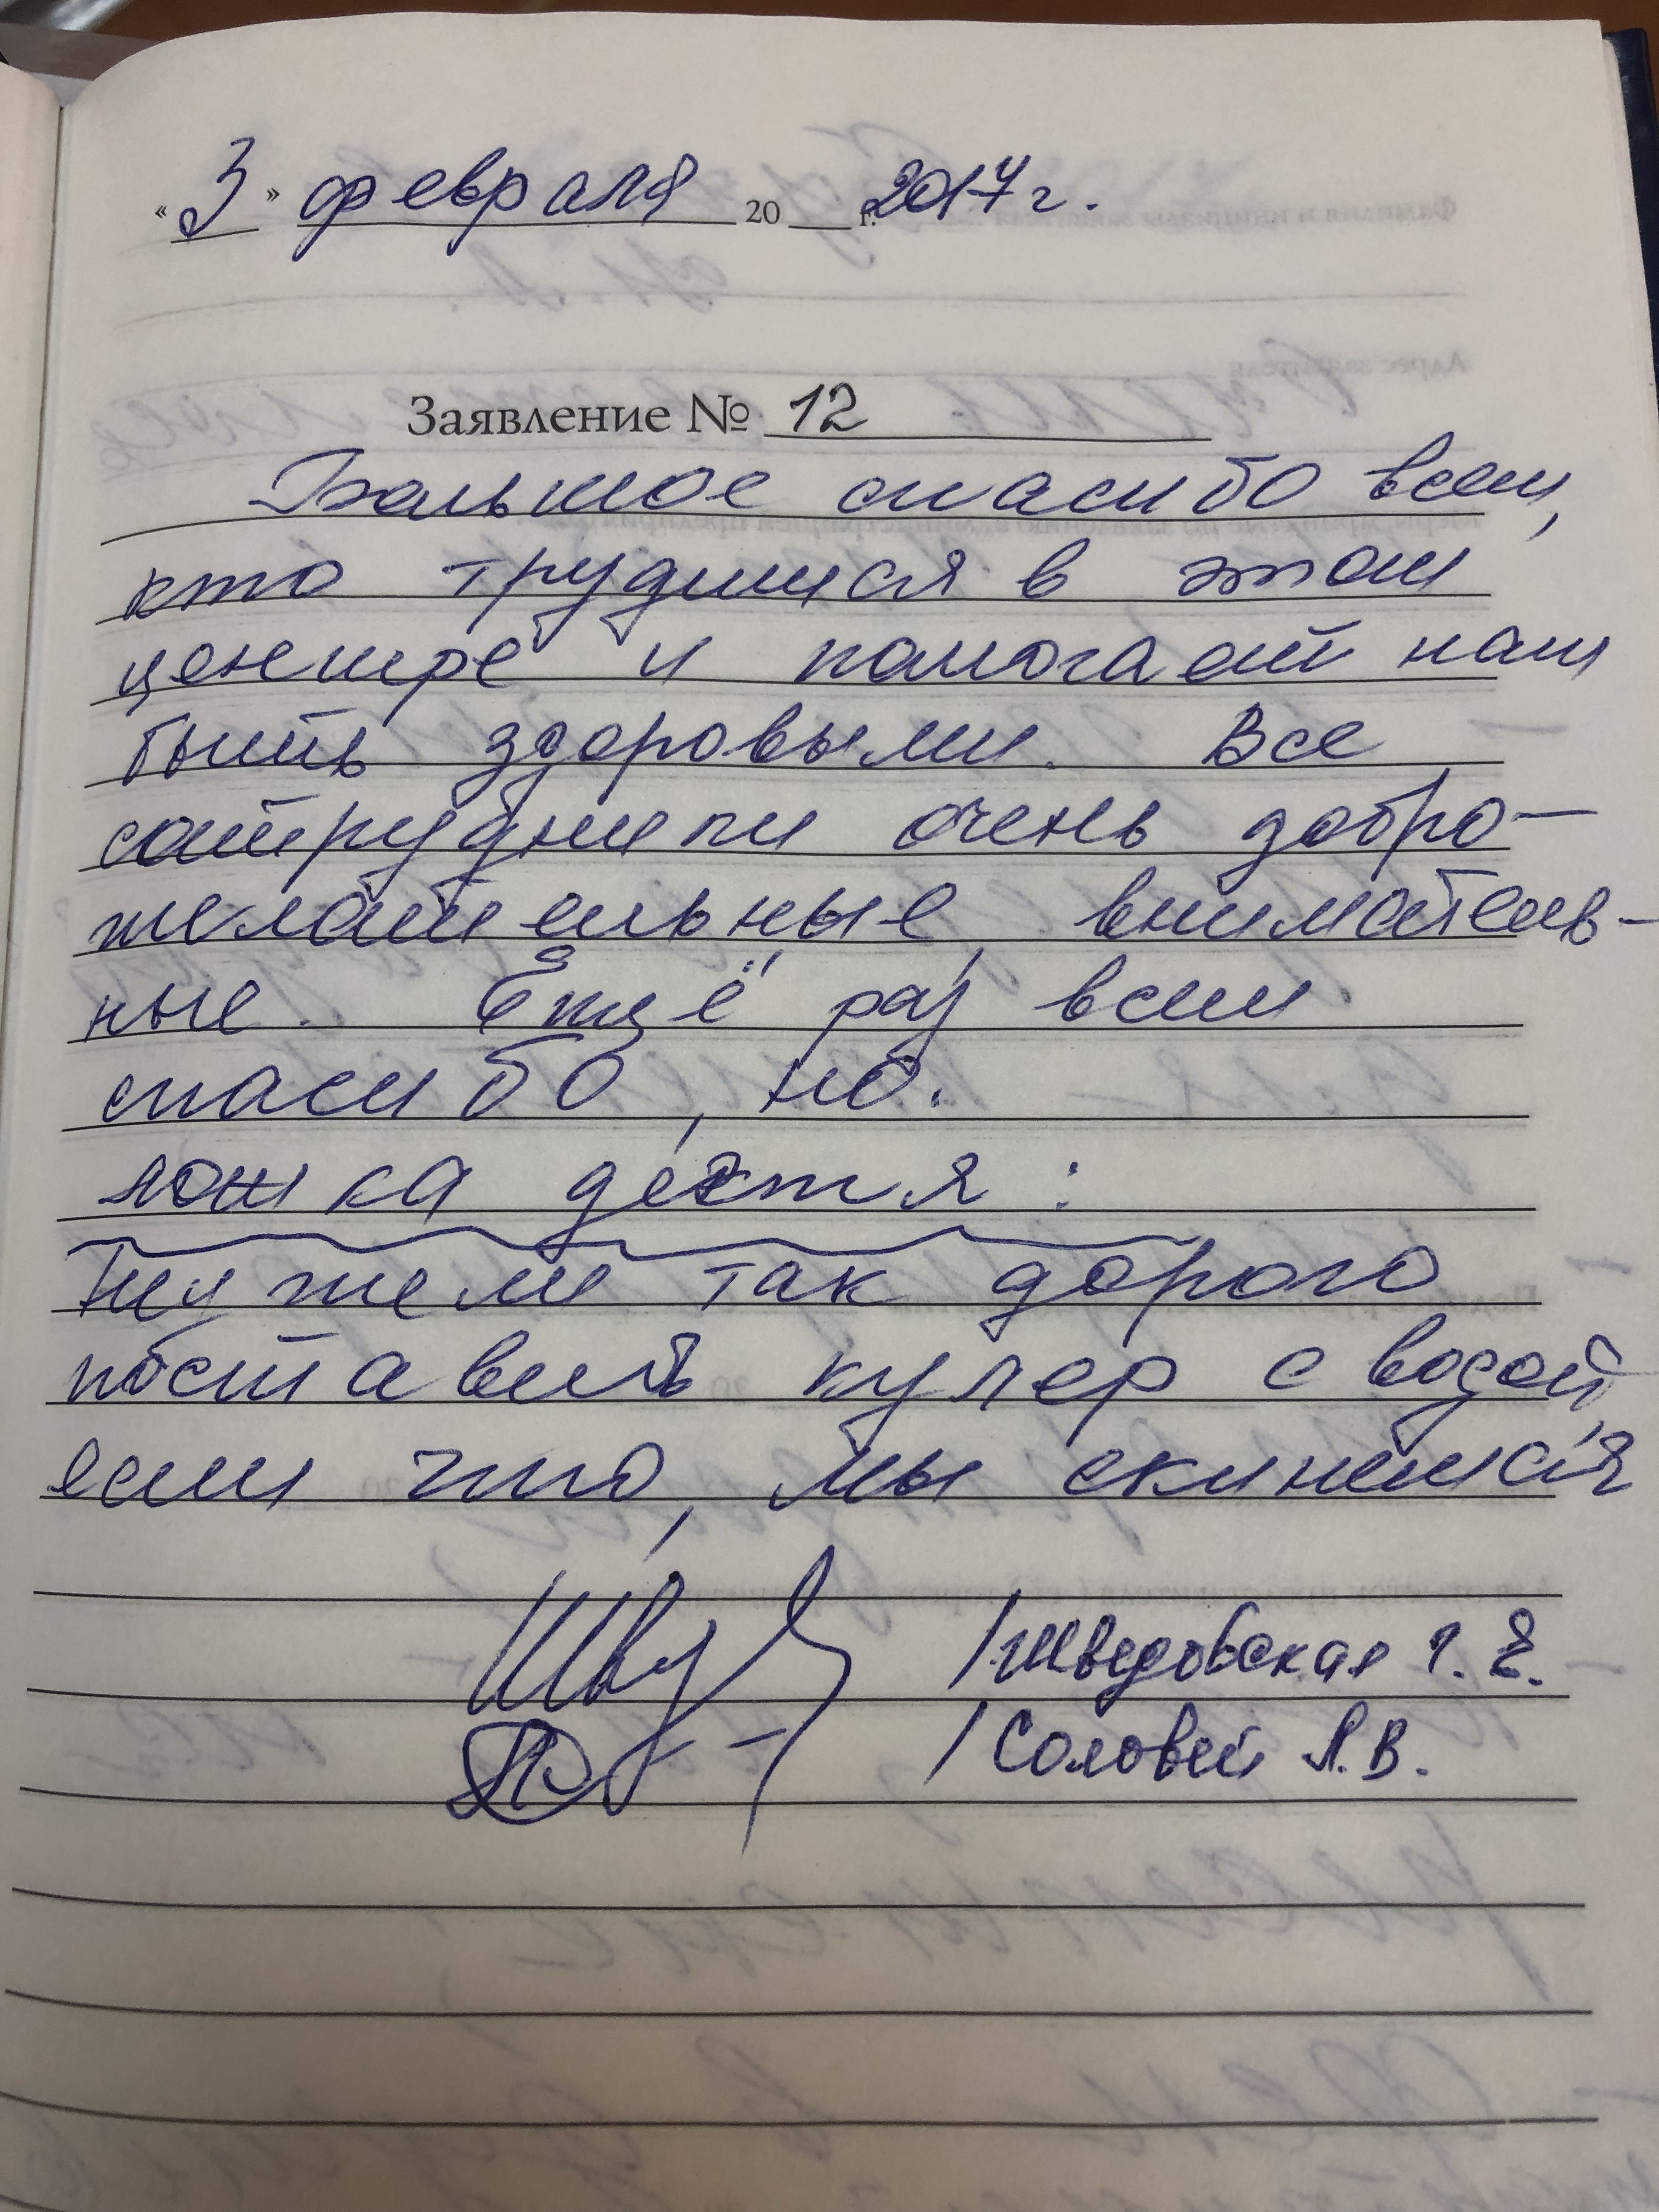 « 3 » февраля 20 г. 2017 г.
Заявление № 12
Большое спасибо всем,
кто трудится в этом
центре и помогает нам
быть здоровыми. Все
сотрудники очень добро-
желательные, вниматель-
ные. Ещё раз всем
спасибо, но.
ложка дёгтя:
Неужели так дорого
поставить кулер с водой,
если что, мы скинемся
/ Шведовская Г. Е.
/ Соловей Л.В.